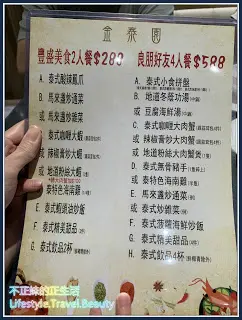 金泰園
豐盛美食2人餐$280
A. 泰式酸辣鳳爪
B. 馬來盞炒通菜
或 馬來盞炒雜菜
C. 泰式咖喱大蝦
或 辣椒膏炒大蝦
或 地道粉絲大蝦
D. 泰特色海南雞
E. 泰式蝦醬油炒飯
F. 泰式精美甜品
G. 泰式飲品2杯
良朋好友4人餐$588
A. 泰式小食拼盤
B. 地道冬蔭功湯
或 豆腐海鮮湯
C. 泰式咖喱大肉蟹
或 辣椒膏炒大肉蟹
或 地道粉絲大肉蟹煲
D. 泰式無骨豬手
或 泰特色海南雞
E. 馬來盞炒通菜
或 泰式炒雜菜
F. 泰式菠蘿海鮮炒飯
G. 泰式精美甜品
H. 泰式飲品4杯
不正妹的正生活
Lifestyle.Travel.Beauty